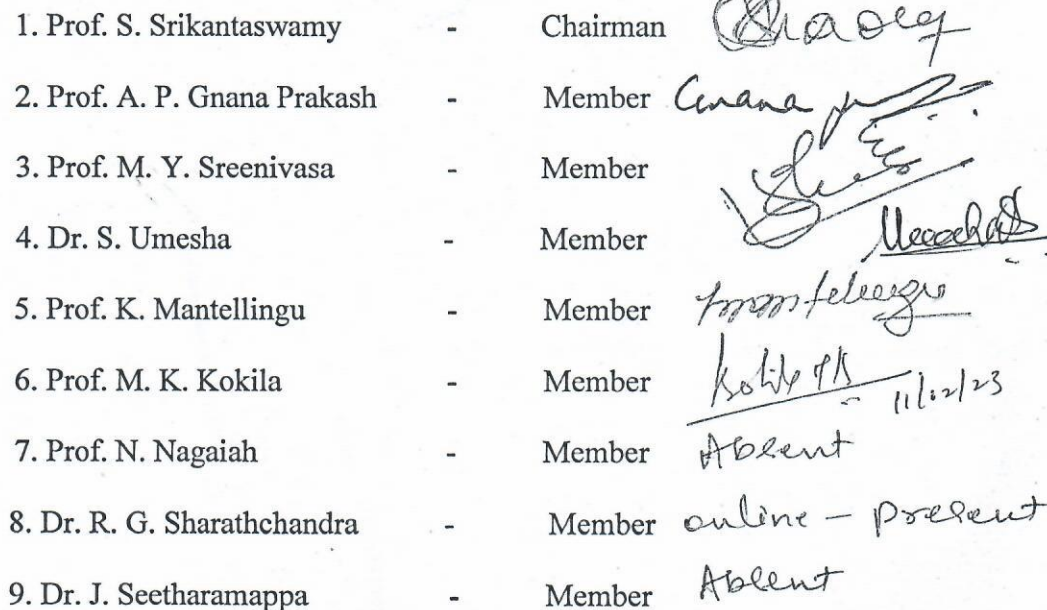 1. Prof. S. Srikantaswamy - Chairman
2. Prof. A. P. Gnana Prakash - Member Gnana
3. Prof. M. Y. Sreenivasa - Member
4. Dr. S. Umesha - Member
5. Prof. K. Mantellingu - Member
6. Prof. M. K. Kokila - Member 11/02/23
7. Prof. N. Nagaiah - Member Absent
8. Dr. R. G. Sharathchandra - Member online - present
9. Dr. J. Seetharamappa - Member Absent